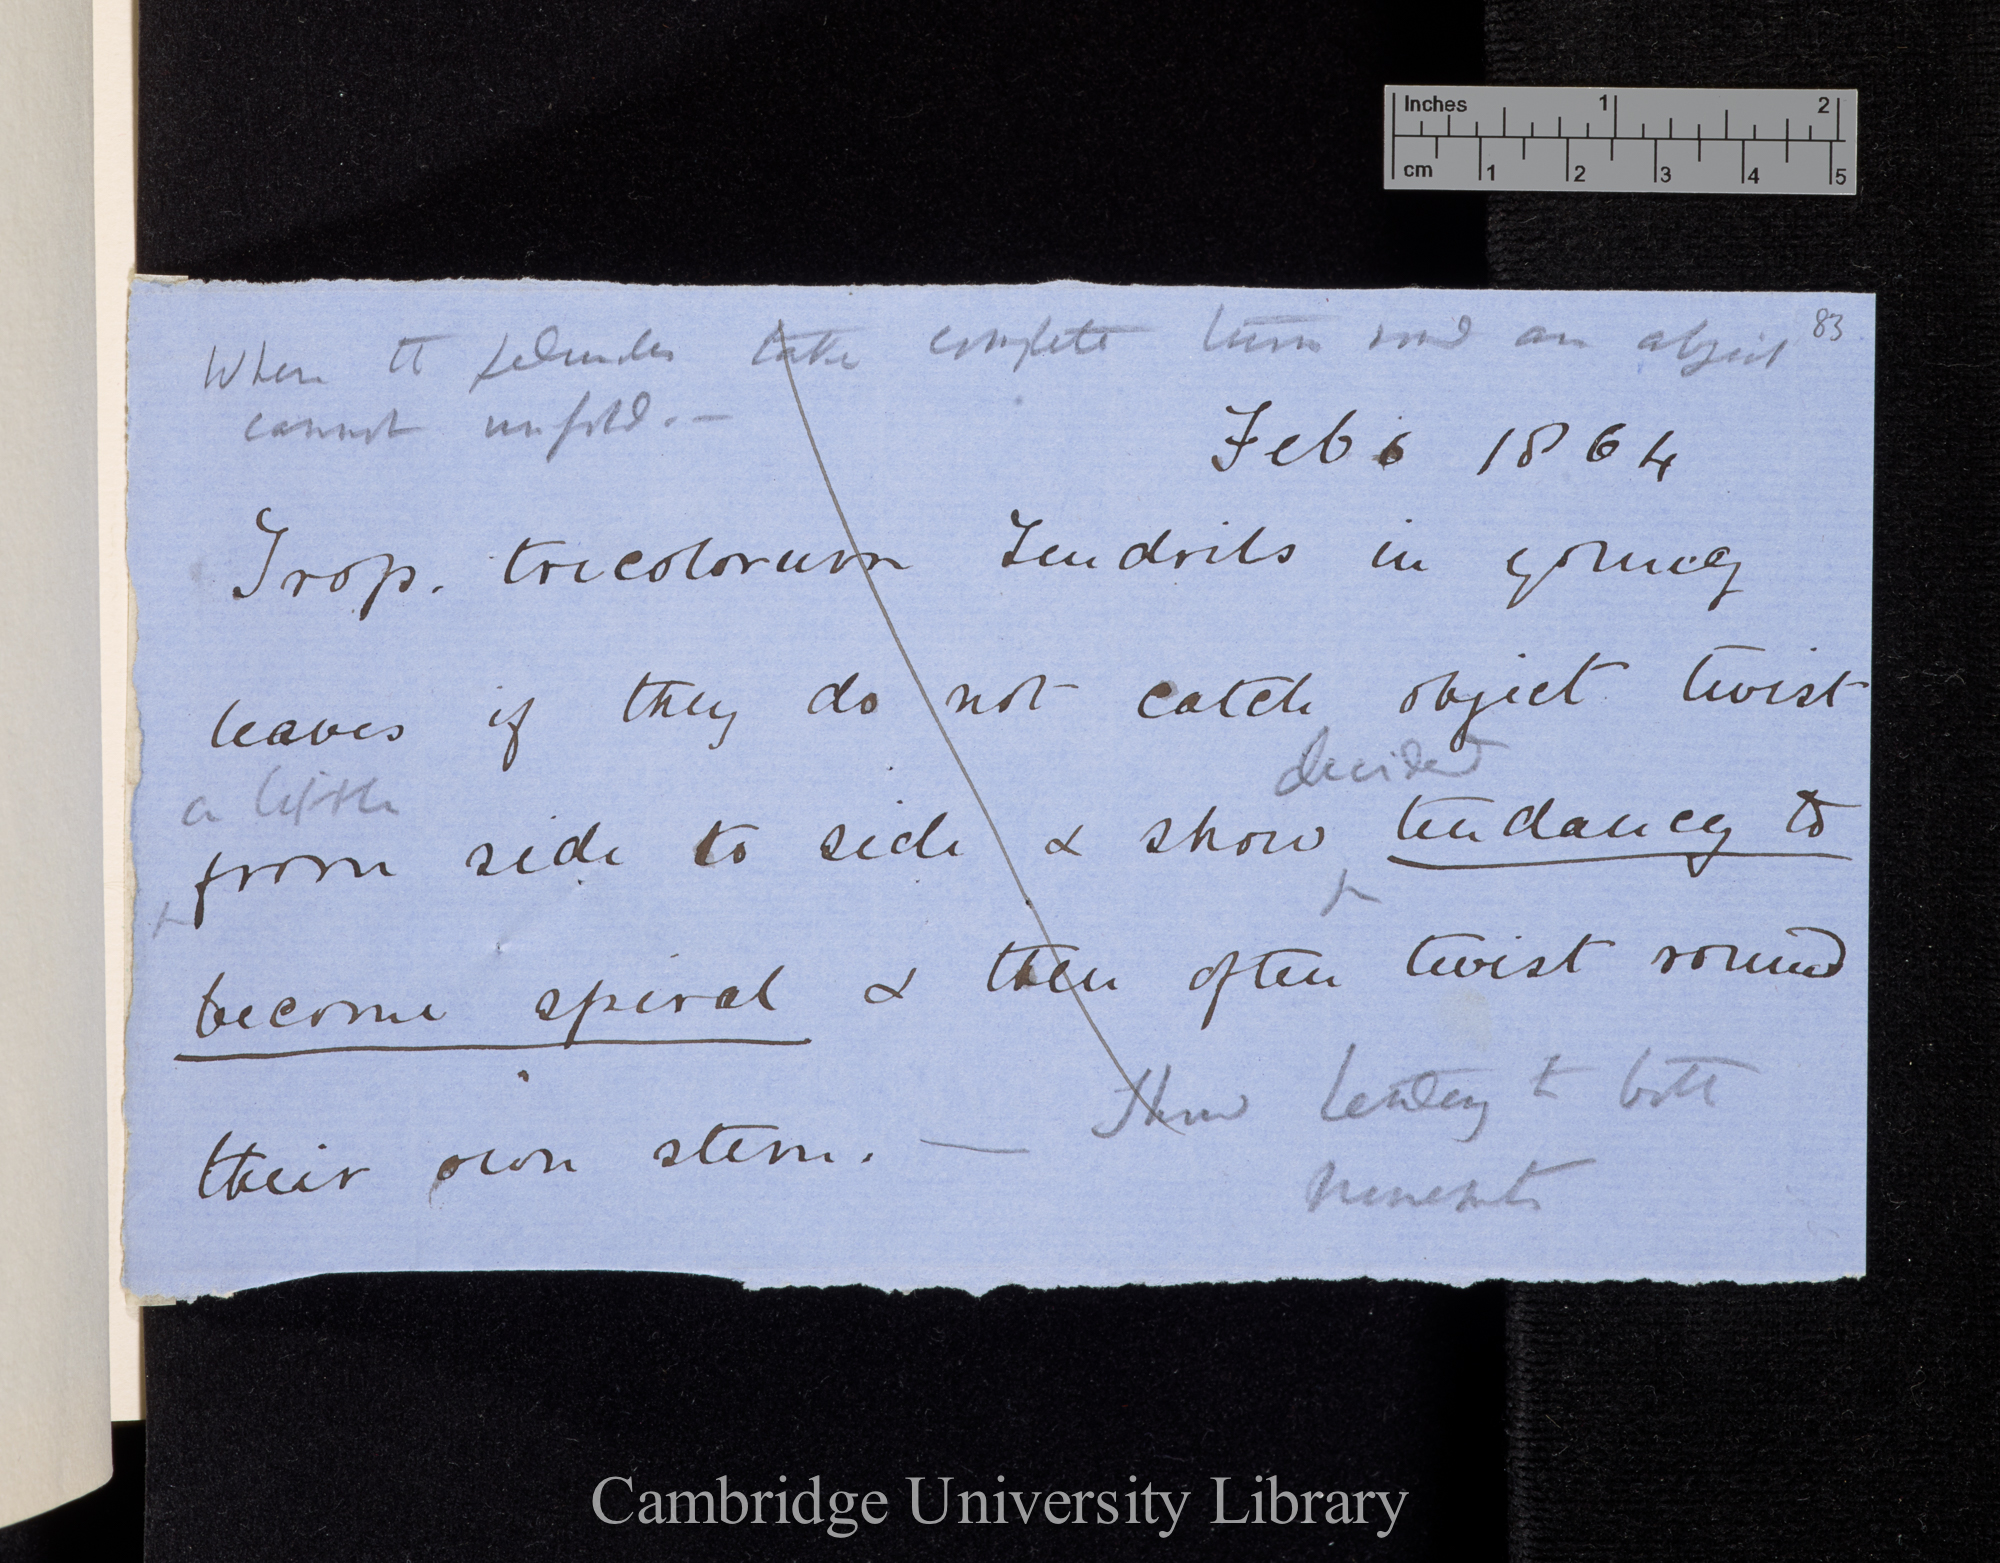 83
When the peduncles take complete turn round an object
cannot unfold. —
Feb 6 1864
Trop. tricolorum Tendrils in young
leaves if they do not catch object twist
a little
decided
from side to side & show tendancy to
become spiral & then often twist round
their own stem. — Show tendency to both
movements
Inches 1 2
cm 1 2 3 4 5
Cambridge University Library